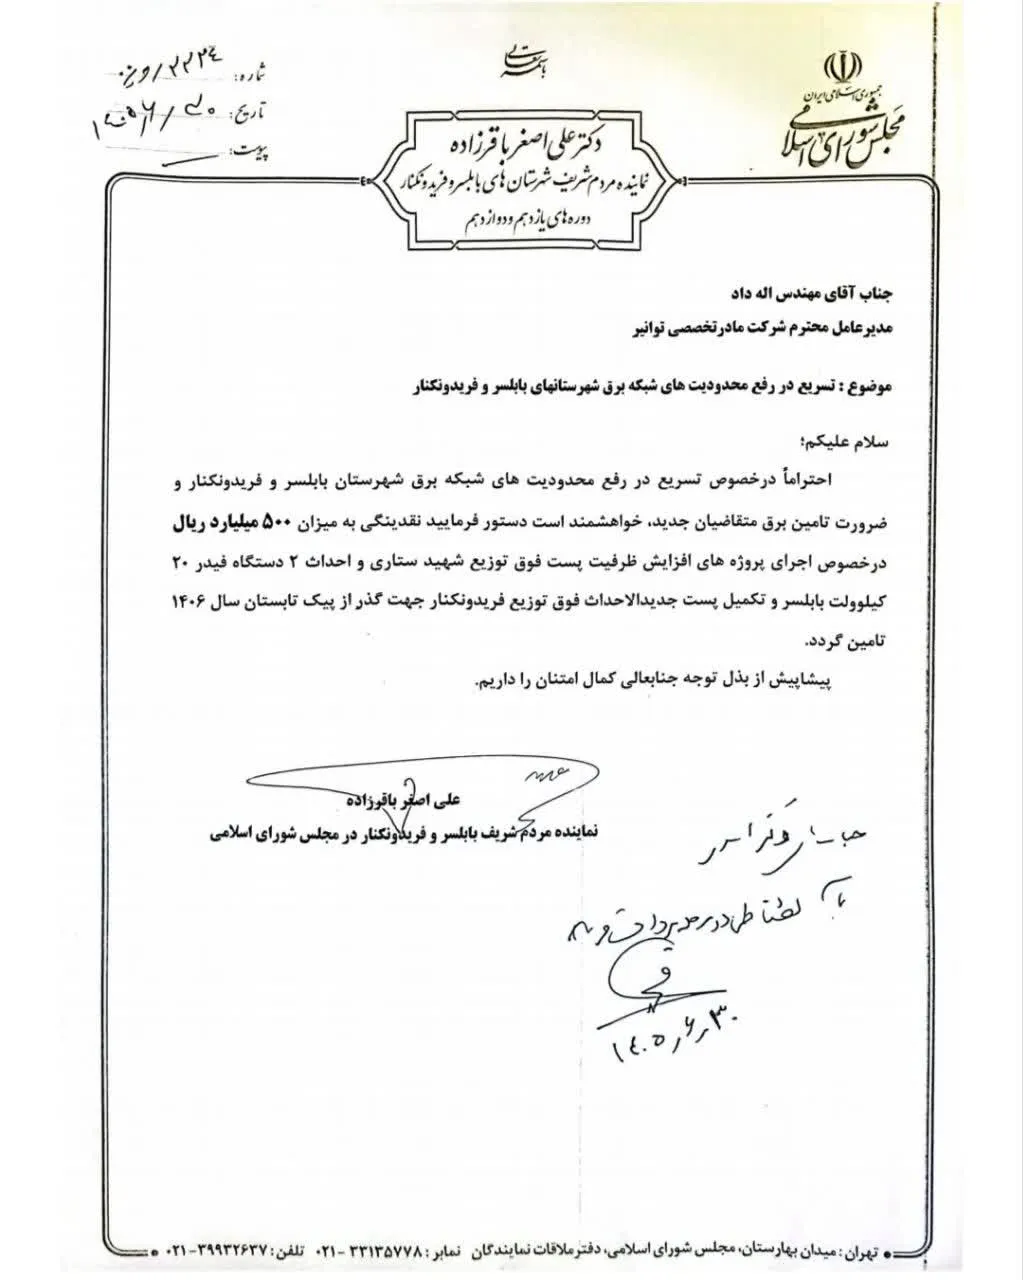 باسمه تعالی
جمهوری اسلامی ایران
مجلس شورای اسلامی
شماره: ۲۲۲۴/و
تاریخ: ۱۴۰۵/۶/۳۰
پیوست:
دکتر علی اصغر باقرزاده
نماینده مردم شریف شهرستان های بابلسر و فریدونکنار
دوره های یازدهم و دوازدهم
جناب آقای مهندس اله داد
مدیرعامل محترم شرکت مادرتخصصی توانیر
موضوع : تسریع در رفع محدودیت های شبکه برق شهرستانهای بابلسر و فریدونکنار
سلام علیکم؛
احتراماً درخصوص تسریع در رفع محدودیت های شبکه برق شهرستان بابلسر و فریدونکنار و
ضرورت تامین برق متقاضیان جدید، خواهشمند است دستور فرمایید نقدینگی به میزان ۵۰۰ میلیارد ریال
درخصوص اجرای پروژه های افزایش ظرفیت پست فوق توزیع شهید ستاری و احداث ۲ دستگاه فیدر ۲۰
کیلوولت بابلسر و تکمیل پست جدیدالاحداث فوق توزیع فریدونکنار جهت گذر از پیک تابستان سال ۱۴۰۶
تامین گردد.
پیشاپیش از بذل توجه جنابعالی کمال امتنان را داریم.
علی اصغر باقرزاده
نماینده مردم شریف بابلسر و فریدونکنار در مجلس شورای اسلامی
لطفاً
۱۴۰۵/۶/۳۰
تهران : میدان بهارستان، مجلس شورای اسلامی، دفتر ملاقات نمایندگان نمابر : ۳۳۱۳۵۷۷۸ -۰۲۱ تلفن : ۳۹۹۳۲۶۳۷-۰۲۱